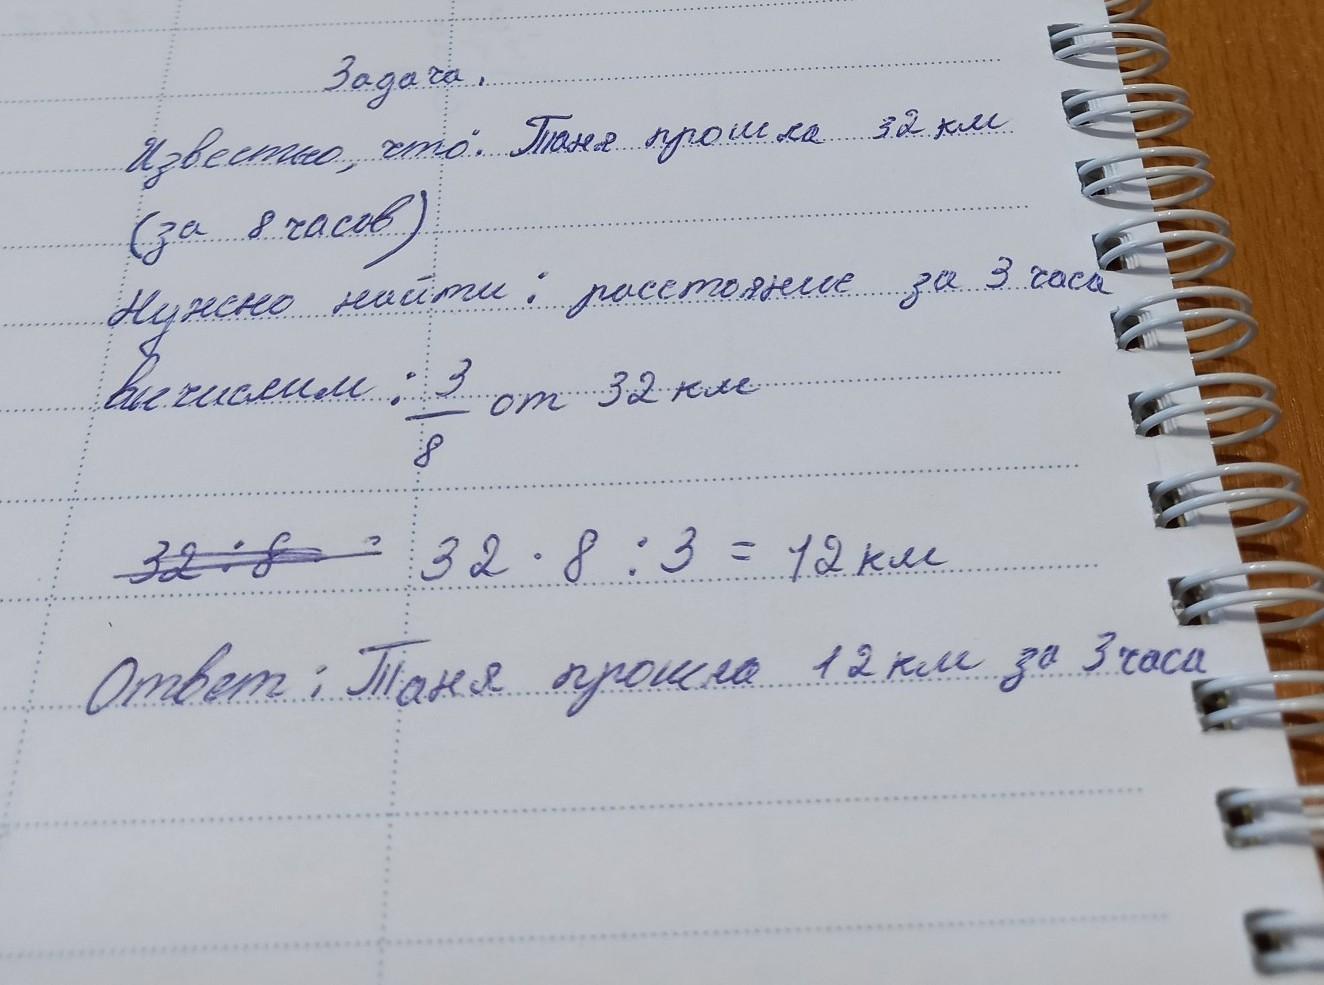 Задача.
Известно, что: Таня прошла 32 км
(за 8 часов)
Нужно найти: расстояние за 3 часа
Вычислим: 3/8 от 32 км
32:8 = 32 · 8 : 3 = 12 км
Ответ: Таня прошла 12 км за 3 часа